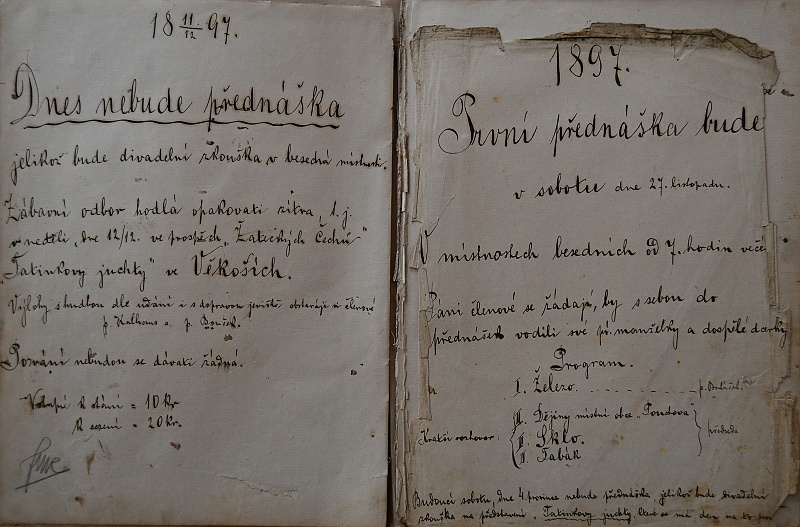 18 11/12 97.
Dnes nebude přednáška
jelikož bude divadelní zkouška v besední místnosti.
Zábavní odbor hodlá opakovati zítra, t. j.
v neděli, dne 12/12. ve prospěch „Žateckých Čechů"
„Tatínkovy juchty" ve Věkoších.
Výlohy s hudbou dle udání i s dopravou jeviště obstarají si členové
p. Kalhous a p.
Pozvání nebudou se dávati žádná.
Vstupné k stání = 10 kr
k sezení = 20 kr.
1897.
První přednáška bude
v sobotu dne 27. listopadu.
V místnostech besedních od 7. hodin več
Páni členové se žádají, by s sebou do
přednášek vodili své př. manželky a dospělé dcerky
Program.
I. Železo. p.
II. Dějiny místní obce „Poudova"
Kratší rozhovor: II. Sklo. předseda
II. Tabák
Budoucí sobotu, dne 4. prosince nebude přednáška, jelikož bude divadelní
zkouška na představení „Tatínkovy juchty, které se má den na to